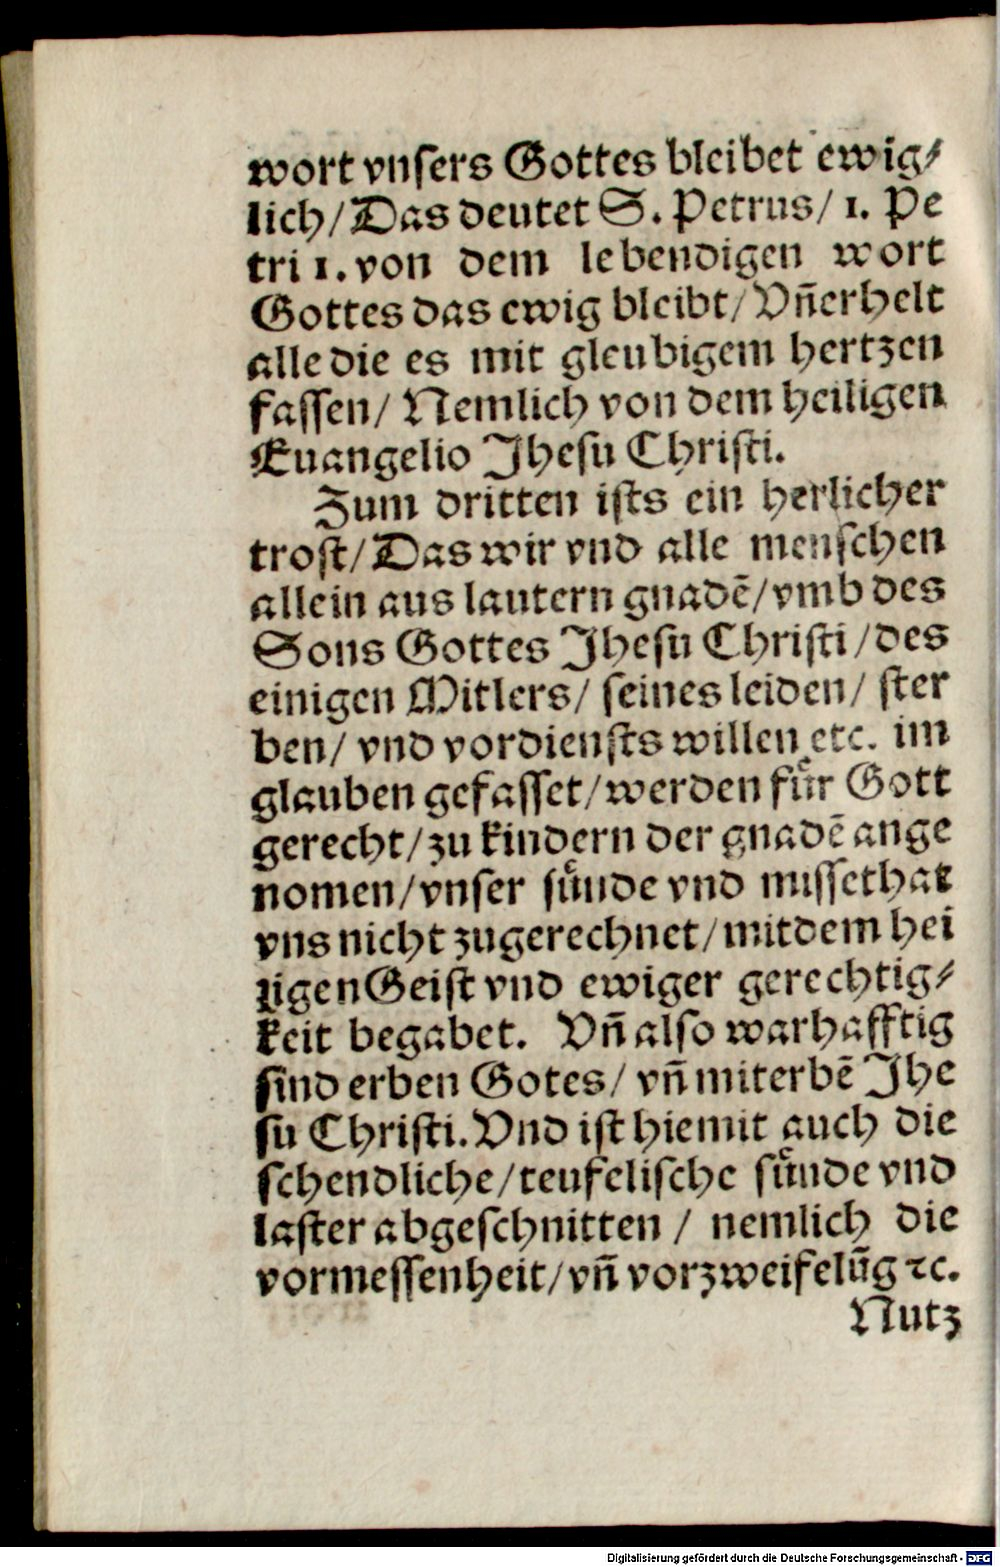 wort vnſers Gottes bleibet ewig⸗
lich/ Das deutet S. Petrus/ 1. Pe
tri 1. von dem lebendigen wort
Gottes das ewig bleibt/ Vñ erhelt
alle die es mit gleubigem hertzen
faſſen/ Nemlich von dem heiligen
Euangelio Jheſu Chriſti.
Zum dritten iſts ein herlicher
troſt/ Das wir vnd alle menſchen
allein aus lautern gnadẽ/ vmb des
Sons Gottes Jheſu Chriſti/ des
einigen Mitlers/ ſeines leiden/ ſter
ben/ vnd vordienſts willen etc. im
glauben gefaſſet/ werden fuͤr Gott
gerecht/ zu kindern der gnadẽ ange
nomen/ vnſer ſuͤnde vnd miſſethat
vns nicht zugerechnet/ mit dem hei
ligen Geiſt vnd ewiger gerechtig⸗
keit begabet. Vñ alſo warhafftig
ſind erben Gotes/ vñ miterbẽ Jhe
ſu Chriſti. Vnd iſt hiemit auch die
ſchendliche/ teufeliſche ſuͤnde vnd
laſter abgeſchnitten / nemlich die
vormeſſenheit/ vñ vorzweifelũg ꝛc.
Nutz
Digitalisierung gefördert durch die Deutsche Forschungsgemeinschaft - DFG